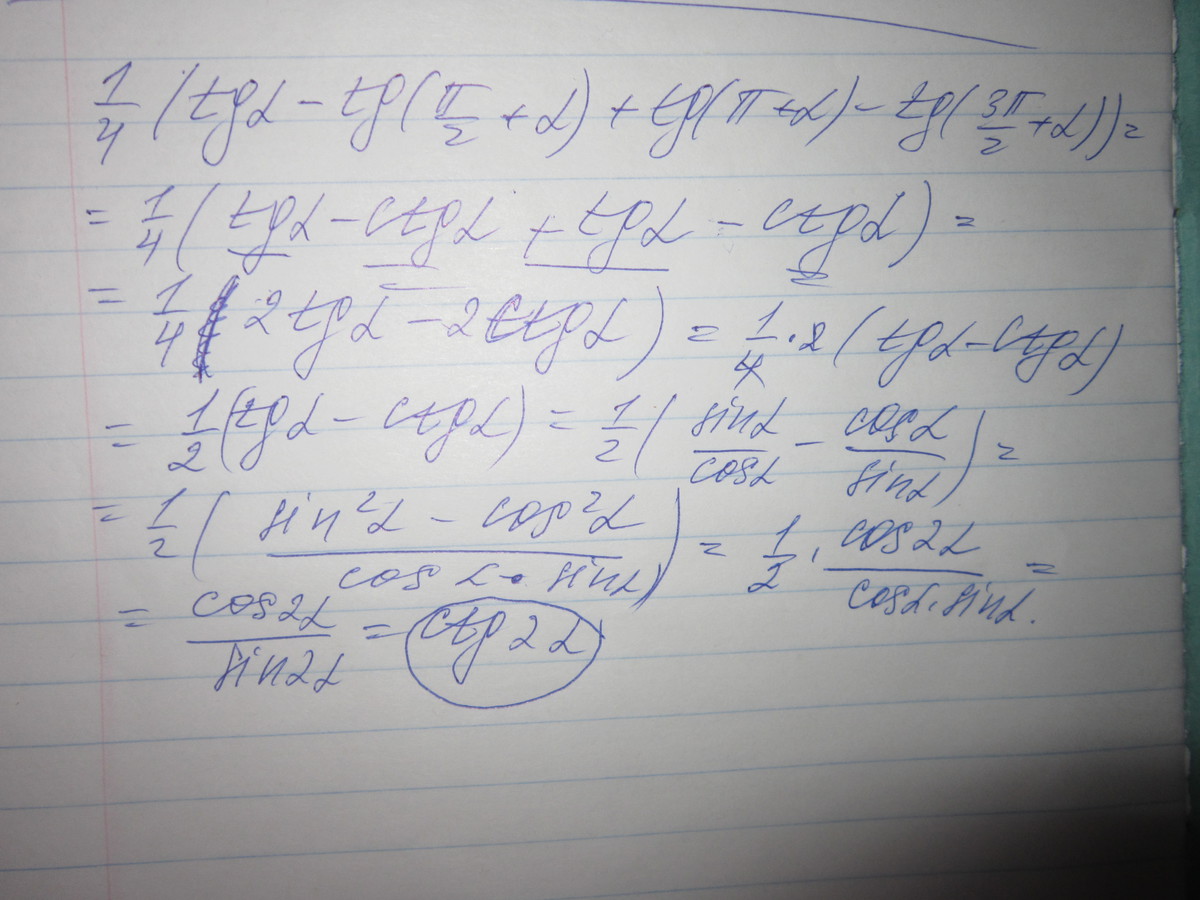 1/4 (tgα − tg(π/2 + α) + tg(π + α) − tg(3π/2 + α)) =
= 1/4 (tgα − ctgα + tgα − ctgα) =
= 1/4 ( 2tgα − 2ctgα) = 1/4 · 2 (tgα − ctgα)
= 1/2 (tgα − ctgα) = 1/2 ( sinα/cosα − cosα/sinα ) =
= 1/2 ( (sin²α − cos²α)/(cosα · sinα) ) = 1/2 · cos2α/(cosα · sinα) =
= cos2α/sin2α = ctg2α